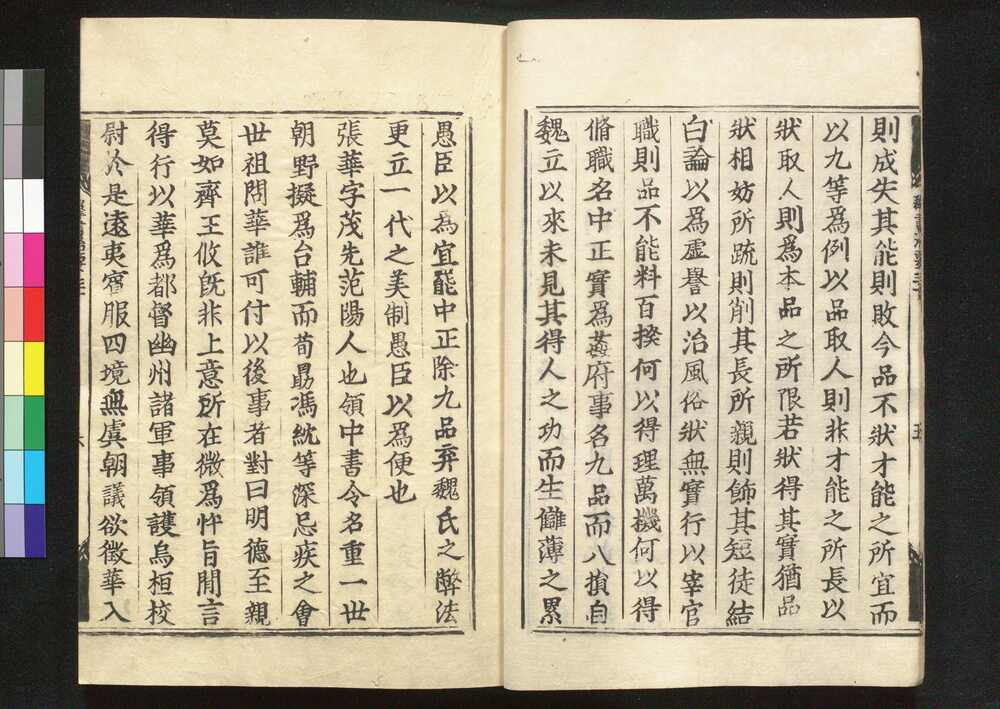 則成失其能則敗今品不狀才能之所宜而
以九等爲例以品取人則非才能之所長以
狀取人則爲本品之所限若狀得其實猶品
狀相妨所疏則削其長所親則飾其短徒結
白論以爲虛譽以治風俗狀無實行以宰官
職則品不能料百揆何以得理萬機何以得
脩職名中正實爲姧府事名九品而八損自
魏立以來未見其得人之功而生讎薄之累
愚臣以爲宜罷中正除九品弃魏氏之弊法
更立一代之美制愚臣以爲便也
張華字茂先范陽人也領中書令名重一世
朝野擬爲台輔而荀勗馮紞等深忌疾之會
世祖問華誰可付以後事者對曰明德至親
莫如齊王攸旣非上意所在微爲忤旨閒言
得行以華爲都督幽州諸軍事領護烏桓校
尉於是遠夷賓服四境無虞朝議欲徵華入
五
六